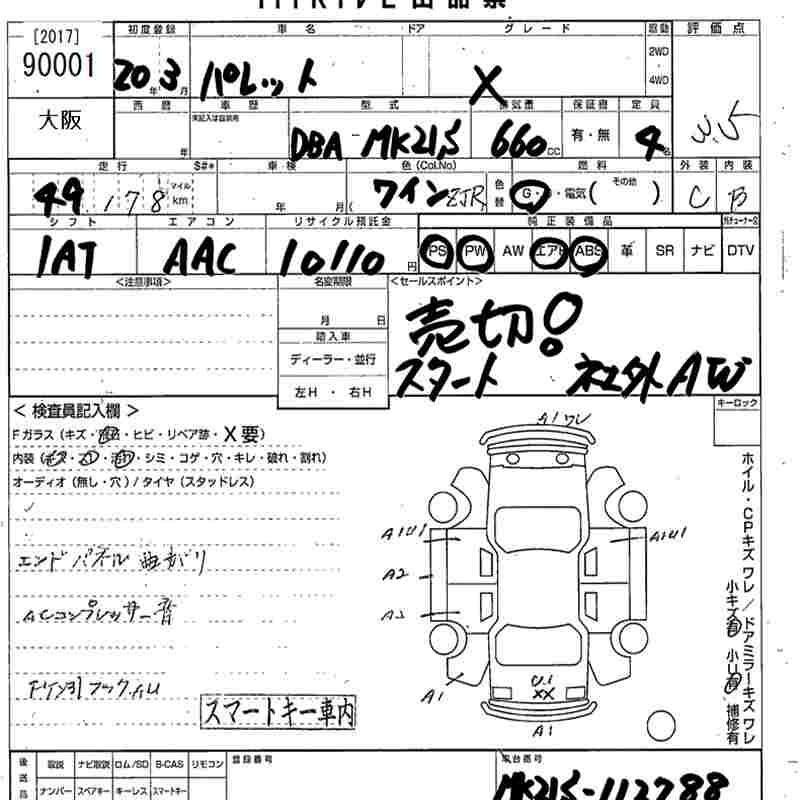 [2017]
90001
大阪
初度登録 車名 ドア グレード 駆動 評価点
20年3月 パレット X 2WD 4WD 3.5
西暦 年 車歴 型式 排気量 保証書 定員
未記入は自家用
DBA-MK21S 660cc 有・無 4名
走行 S#* 車検 色(Col.No) 燃料 外装 内装
49,178 マイル km 年 月( ワイン ZJR 色替 G・D・電気( その他 ) C B
シフト エアコン リサイクル預託金 純正装備品
IAT AAC 10110円 PS PW AW エアB ABS 革 SR ナビ DTV
<注意事項> 名変期限 <セールスポイント>
月 日
売切!
スタート 社外AW
ディーラー・並行
左H ・ 右H
キーロック
<検査員記入欄>
Fガラス(キズ・ ・ヒビ・リペア跡・X要)
内装( ・ ・ ・シミ・コゲ・穴・キレ・破れ・割れ)
オーディオ(無し・穴)/タイヤ(スタッドレス)
エンドパネル曲がり
ACコンプレッサー音
ケン引フックイレ
スマートキー車内
A1ワレ
A1U1
A1U1
A2
A2
A1
U1
XX
A1
ホイル・CPキズワレ/ドアミラーキズワレ
小キズ有 小U有 補修有
後送品 取説 ナビ取説 ロム/SD B-CAS リモコン 登録番号 車台番号
ナンバー スペアキー キーレス スマートキー
MK21S-112788